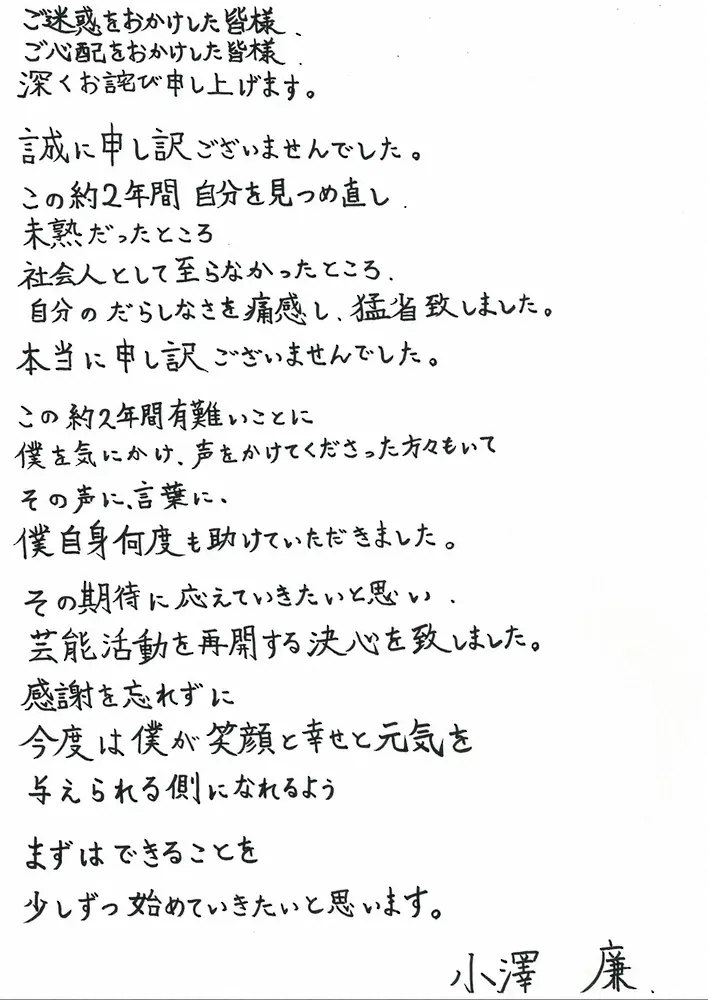 ご迷惑をおかけした皆様、
ご心配をおかけした皆様、
深くお詫び申し上げます。
誠に申し訳ございませんでした。
この約2年間 自分を見つめ直し、
未熟だったところ
社会人として至らなかったところ、
自分のだらしなさを痛感し、猛省致しました。
本当に申し訳ございませんでした。
この約2年間有難いことに
僕を気にかけ、声をかけてくださった方々もいて
その声に、言葉に、
僕自身何度も助けていただきました。
その期待に応えていきたいと思い、
芸能活動を再開する決心を致しました。
感謝を忘れずに
今度は僕が笑顔と幸せと元気を
与えられる側になれるよう
まずはできることを
少しずつ始めていきたいと思います。
小澤 廉